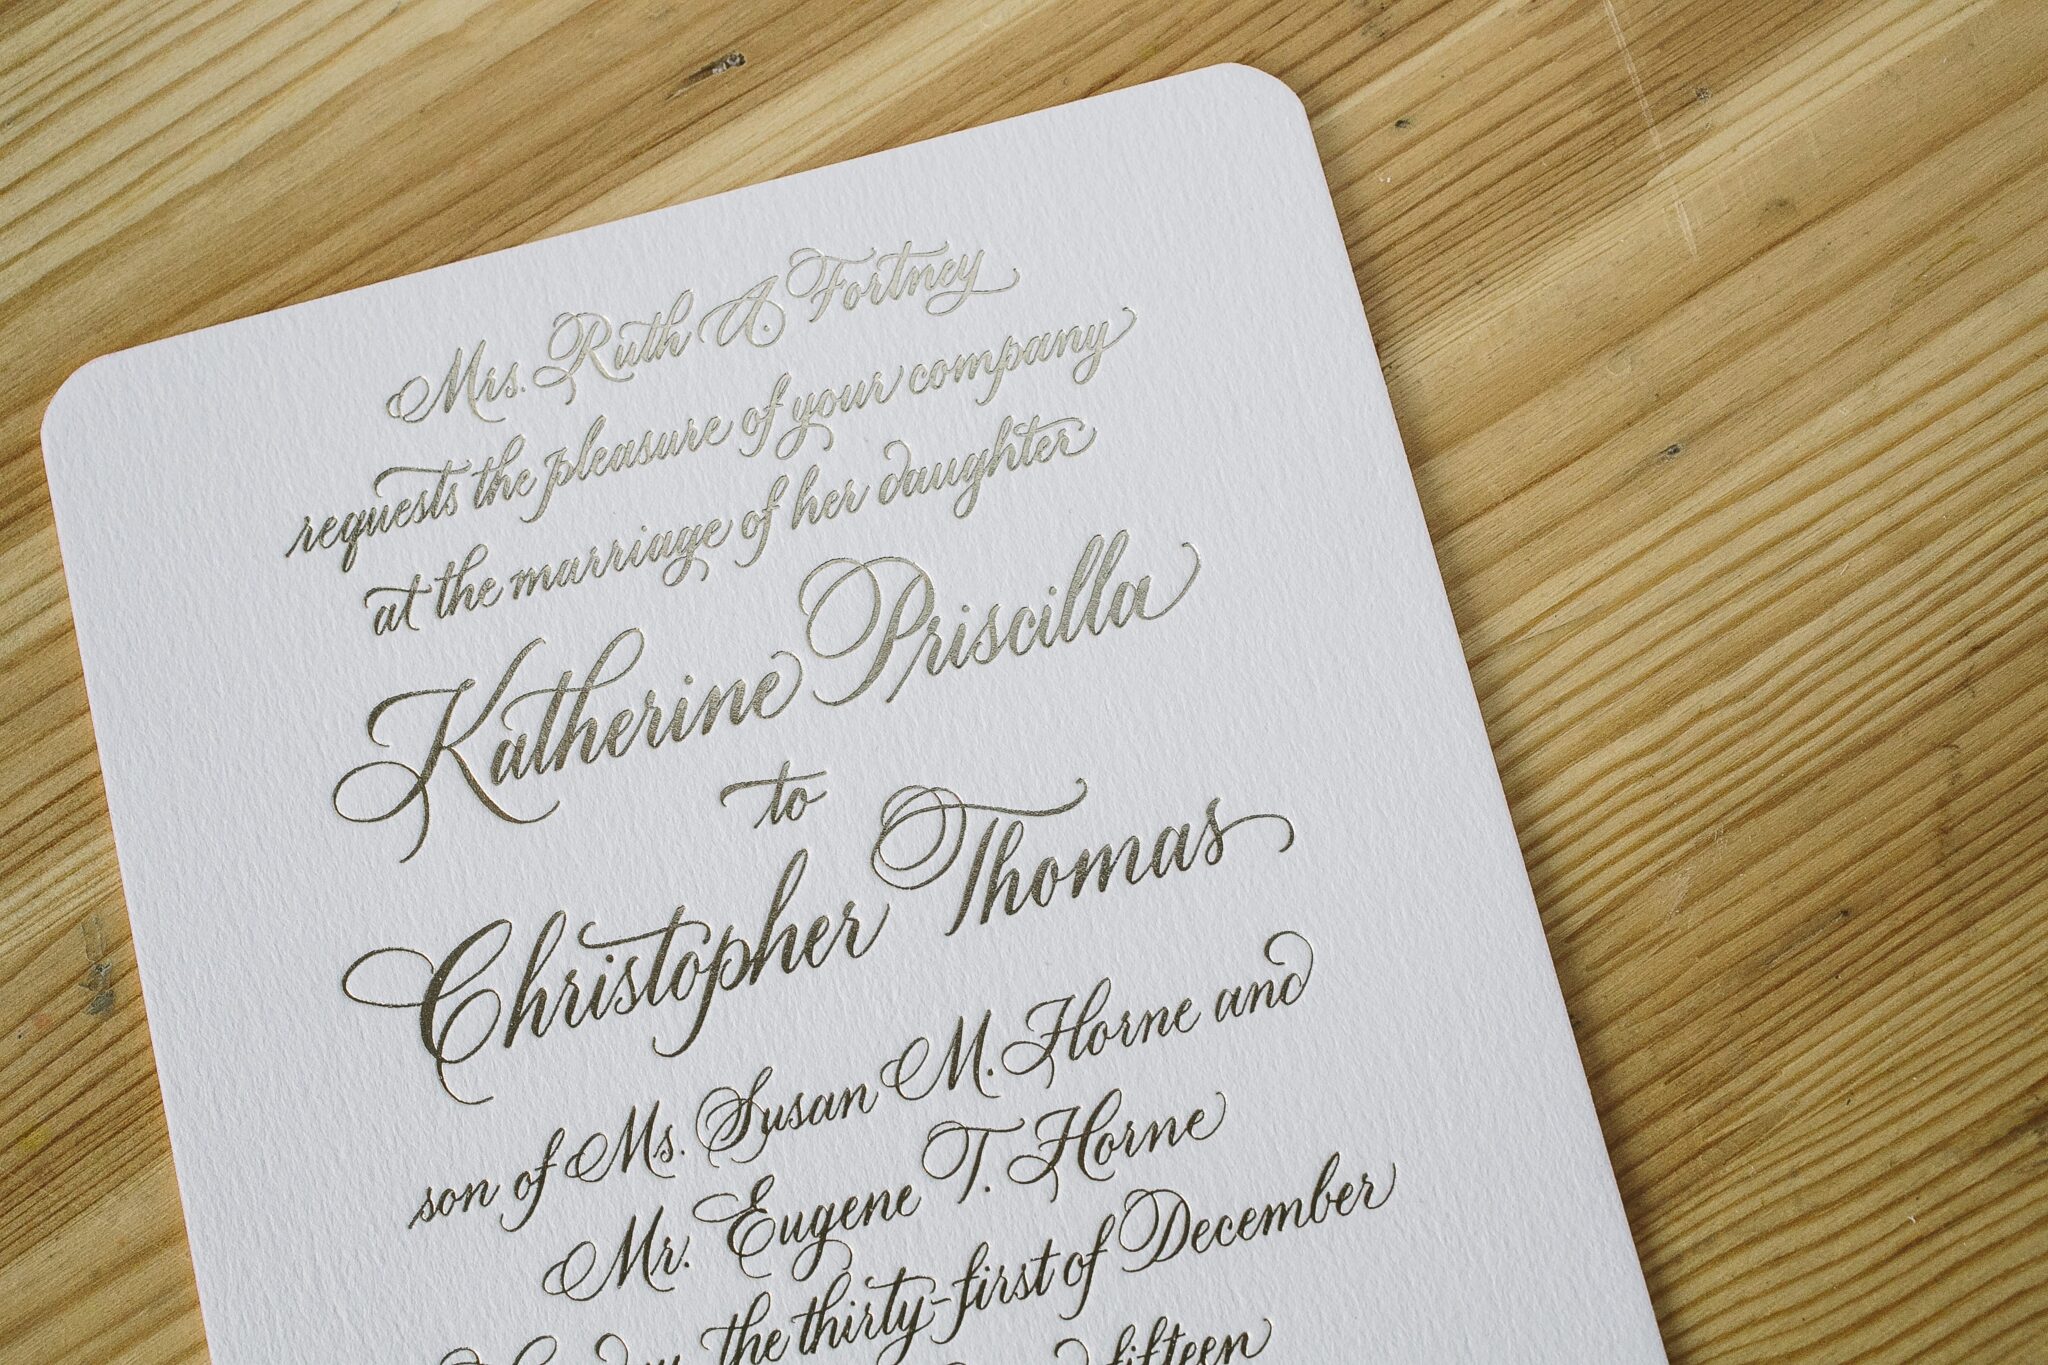 Mrs. Ruth A. Fortney
requests the pleasure of your company
at the marriage of her daughter
Katherine Priscilla
to
Christopher Thomas
son of Ms. Susan M. Horne and
Mr. Eugene T. Horne
the thirty-first of December
fifteen